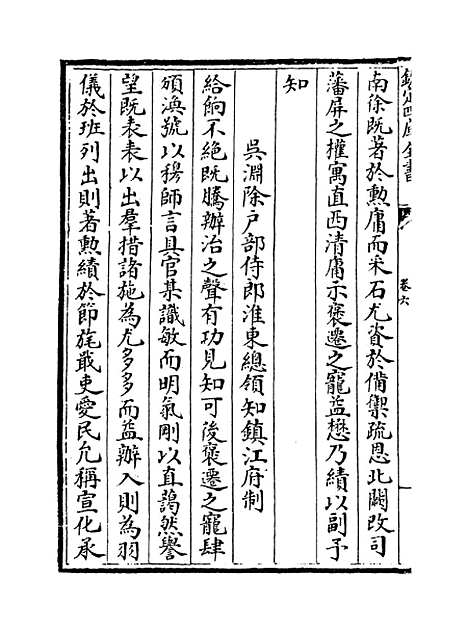 欽定四庫全書
卷六
南徐既著於勲庸而采石尤資於備禦疏恩北闕改司
藩屏之權寓直西清庸示褒遷之寵益懋乃績以副予
知
吳淵除戶部侍郎淮東總領知鎮江府制
給餉不絶既騰辦治之聲有功見知可後褒遷之寵肆
頒渙號以穆師言具官某識敏而明氣剛以直藹然譽
望既表表以出羣措諸施為尤多多而益辦入則為羽
儀於班列出則著勲績於節旄戢吏愛民允稱宣化承